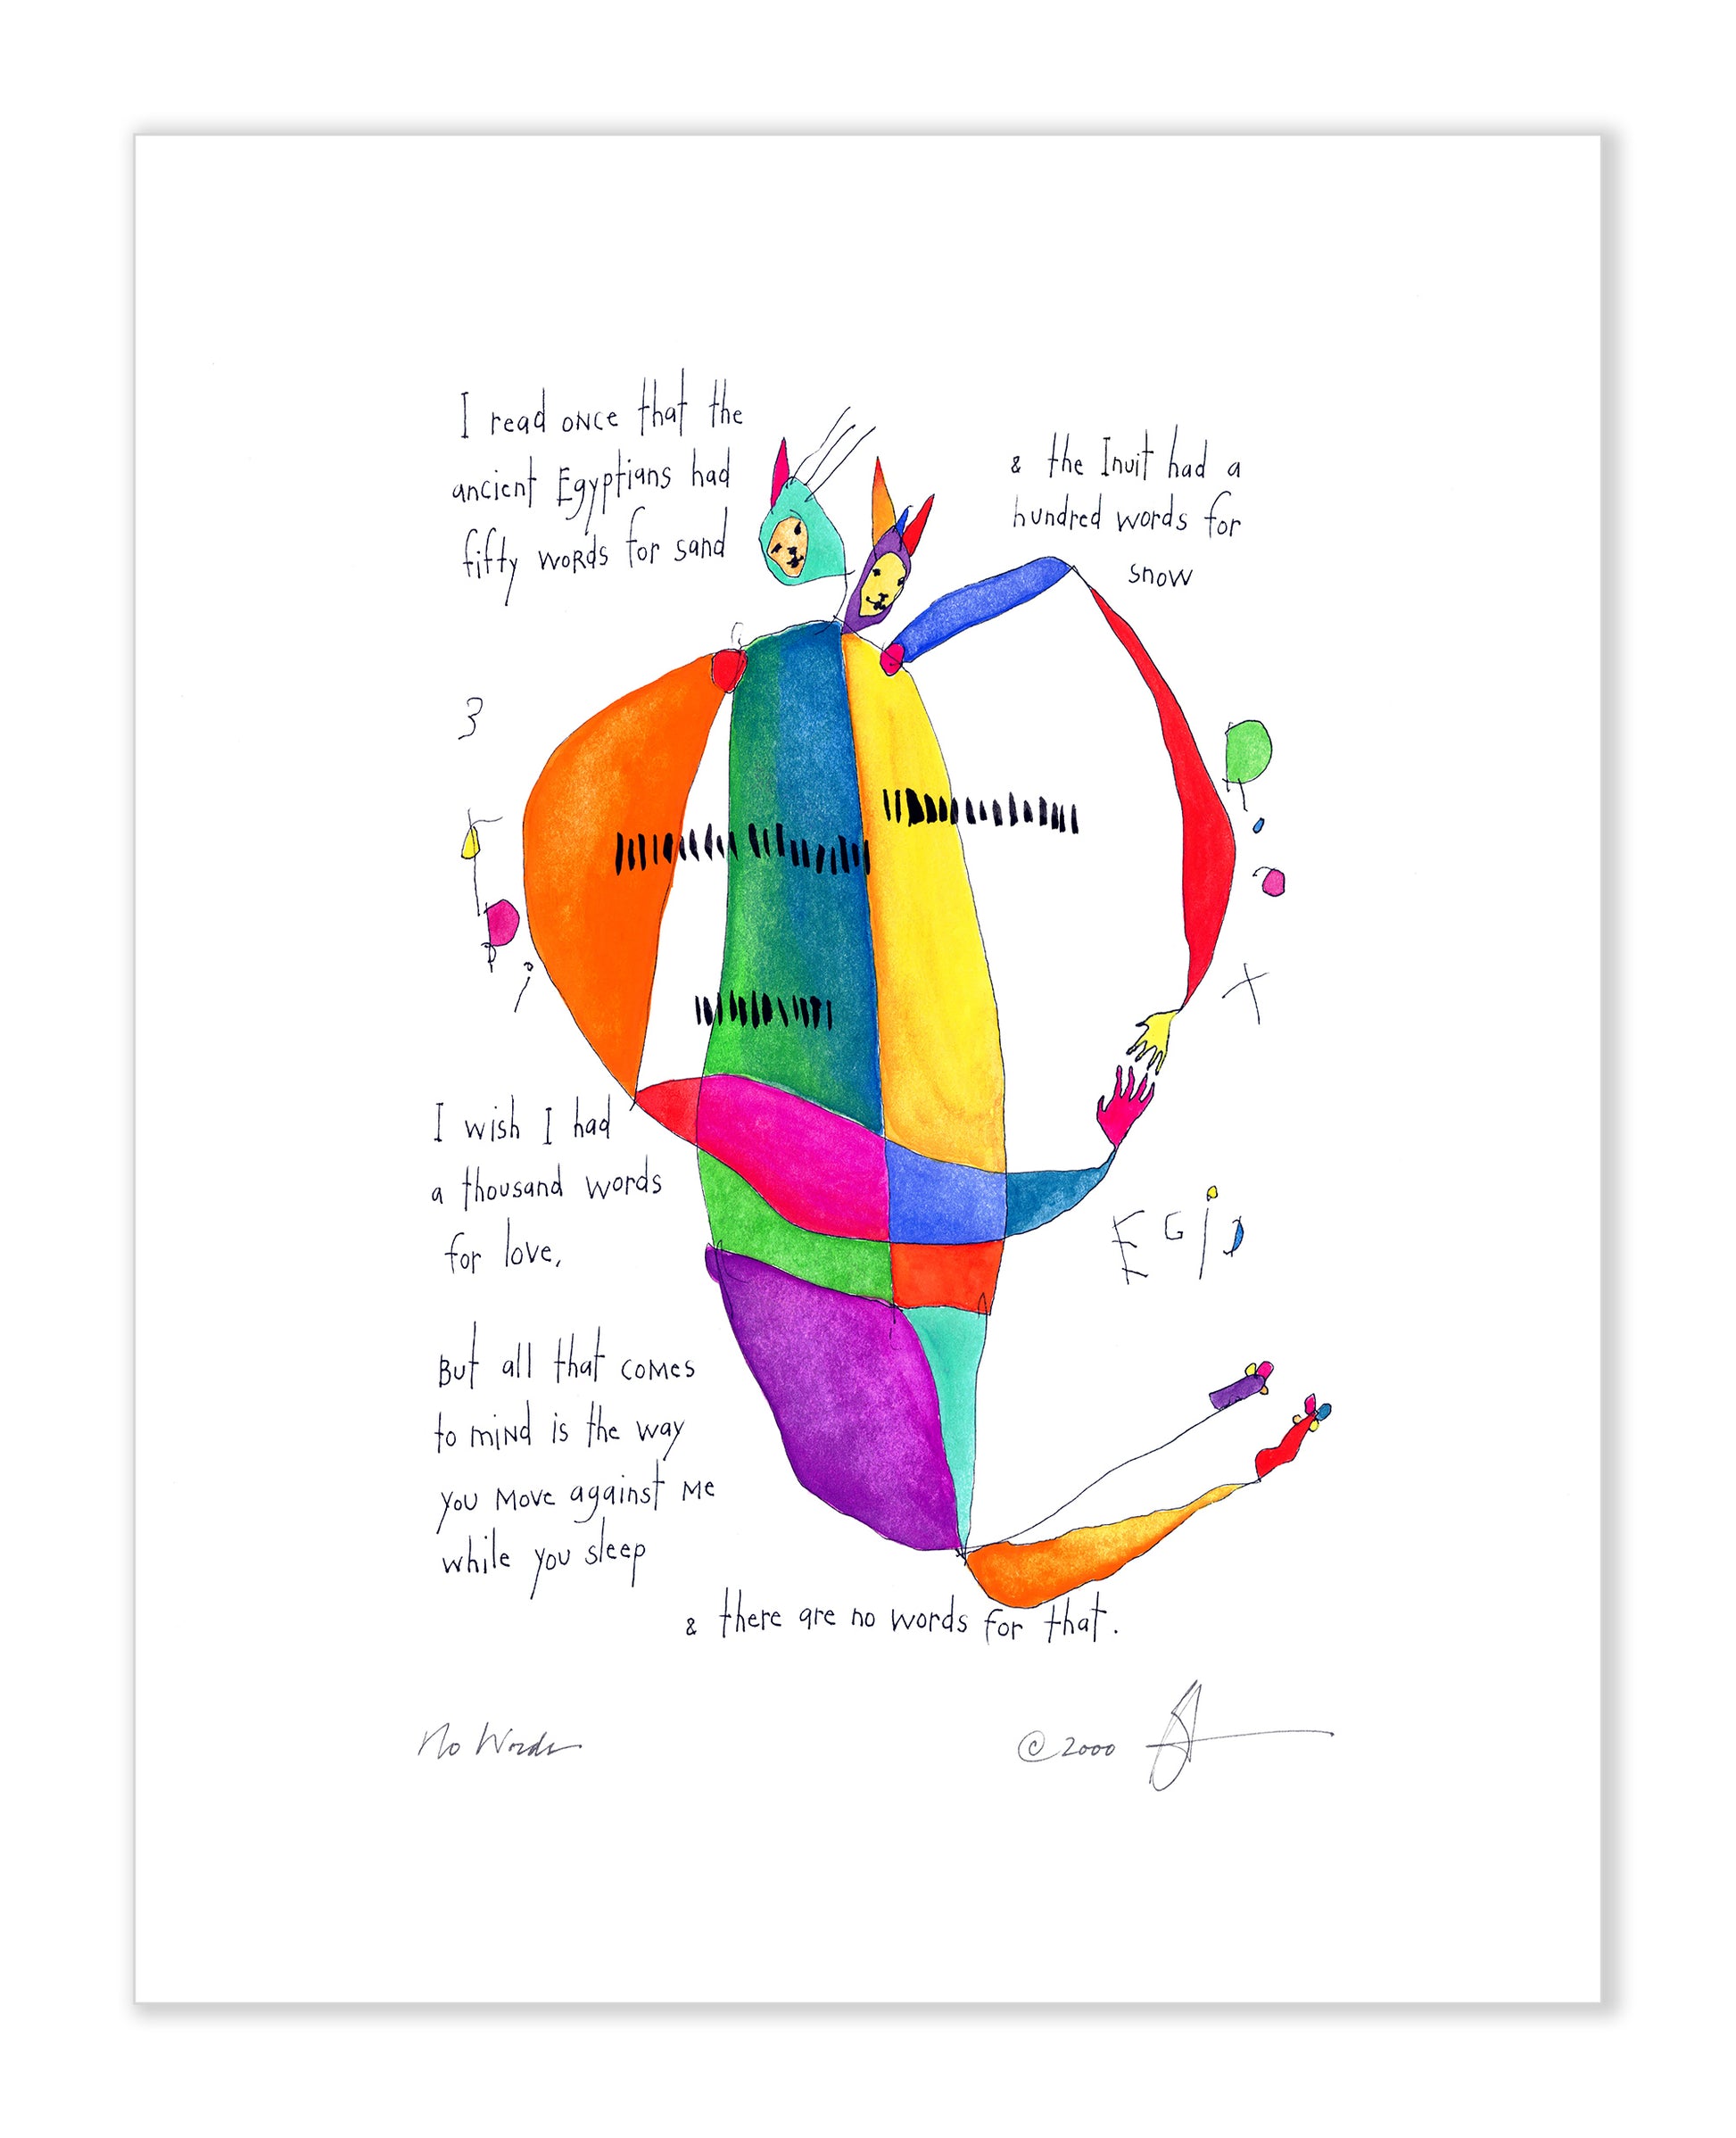 I read once that the
ancient Egyptians had
fifty words for sand
& the Inuit had a
hundred words for
snow
3
I wish I had
a thousand words
for love,
E G i
But all that comes
to mind is the way
you move against me
while you sleep
& there are no words for that.
No Words
© 2000